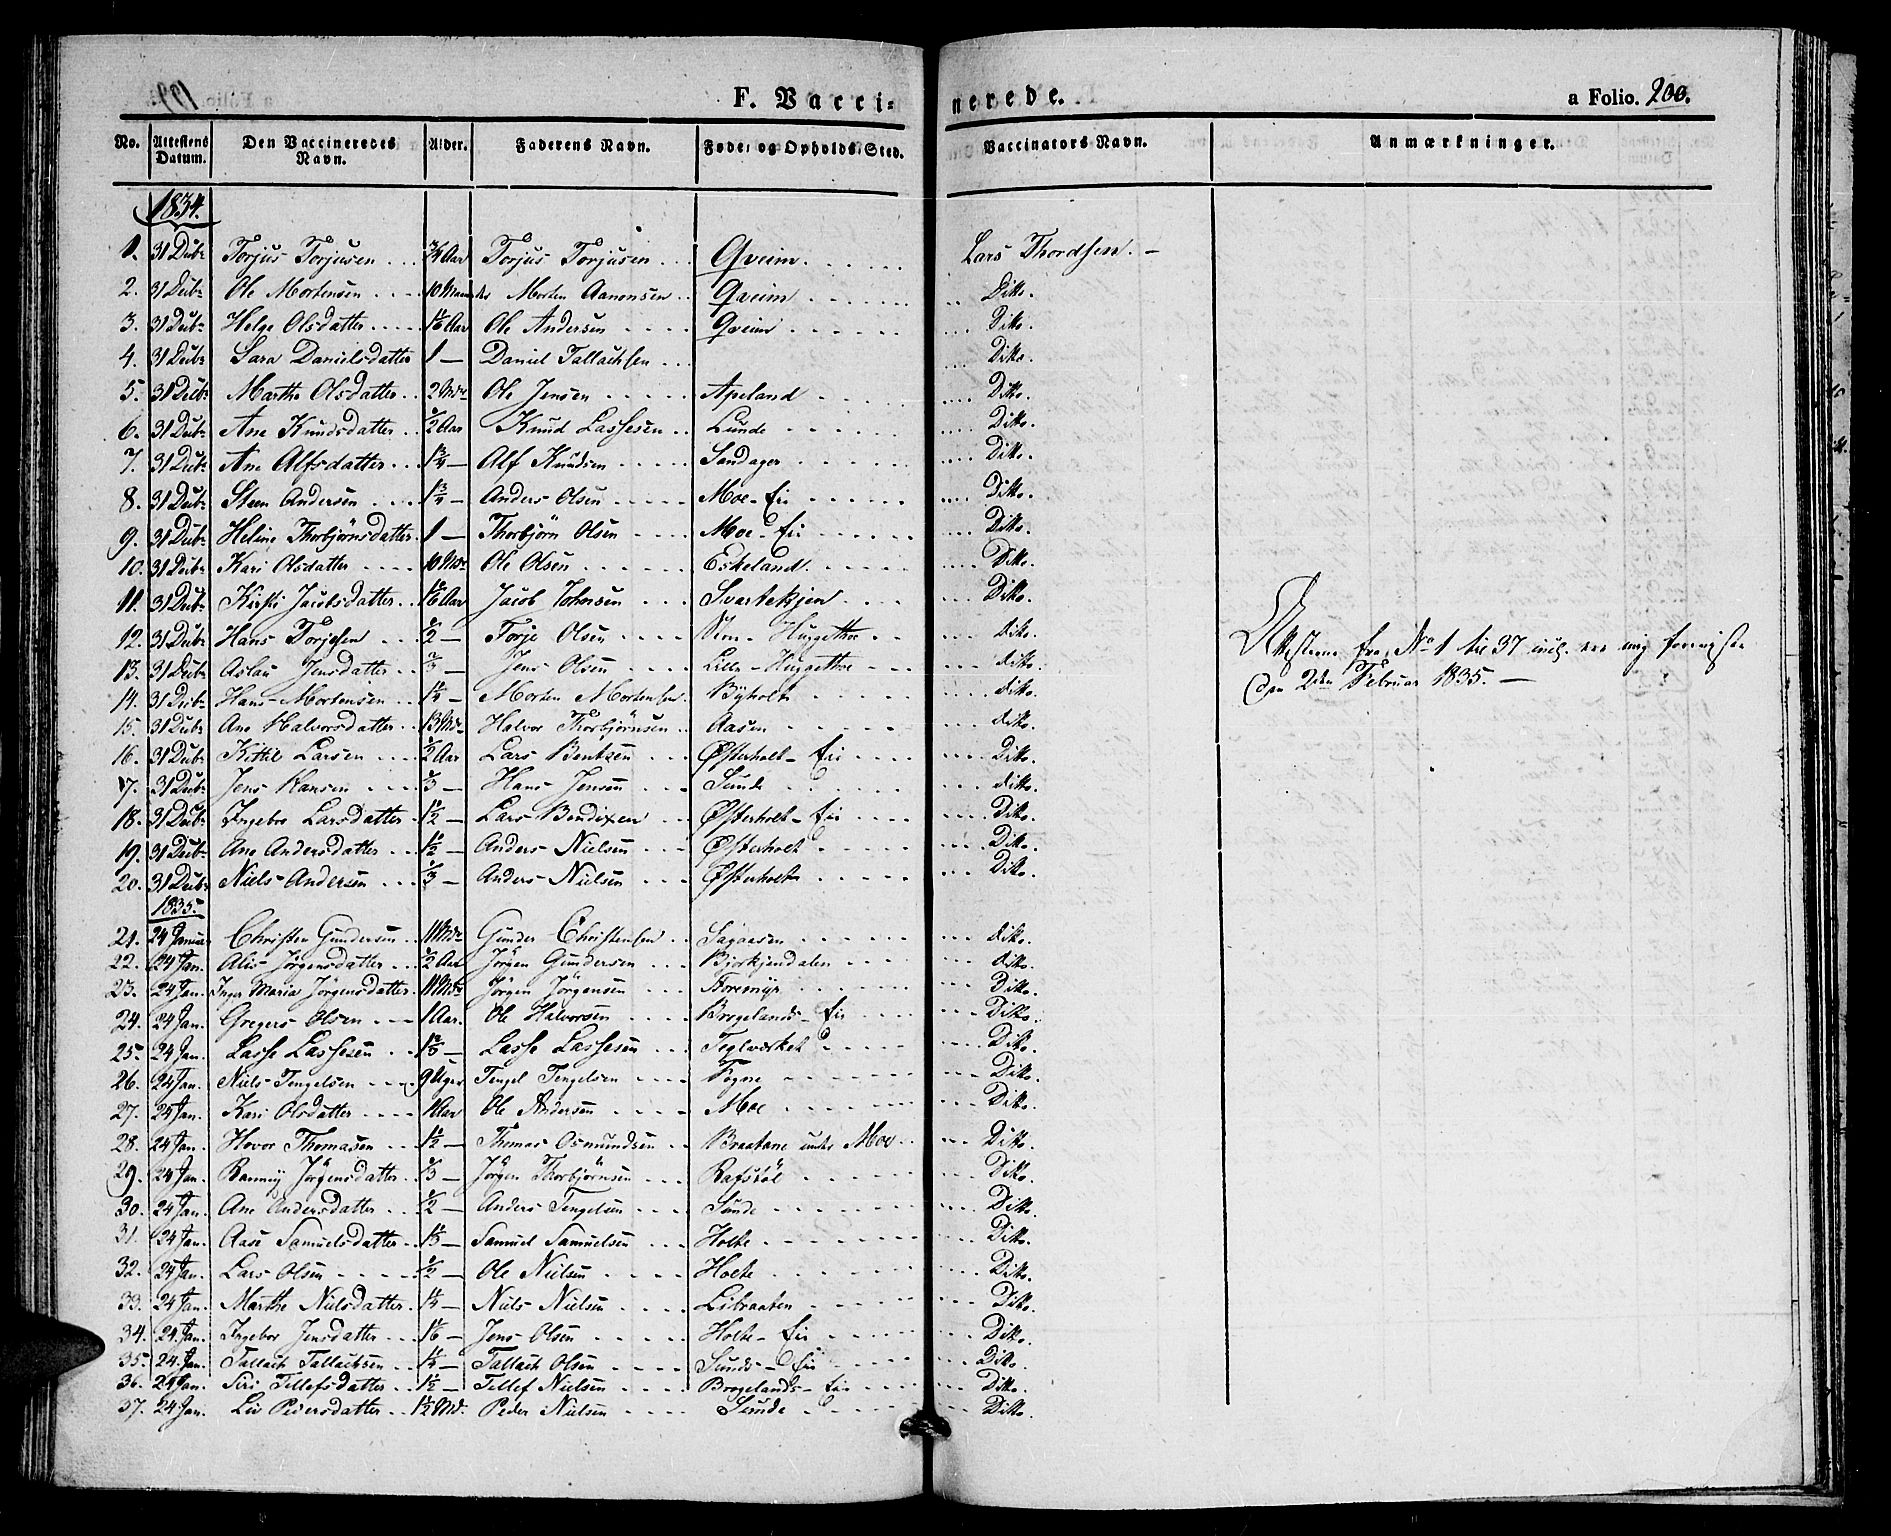 F. Vaccinerede. a Folio. 200.
No. Attestens Datum. Den Vaccineredes Navn. Alder. Faderens Navn. Føde- og Opholds-Sted. Vaccinators Navn. Anmærkninger.
1834.
1. 31 Decbr Torjus Torjusen 3/4 Aar Torjus Torjusen Qveim. Lars Thordsen. —
2. 31 Decbr Ole Mortensen 10 Maaneder Morten Aanonsen Qveim Ditto.
3. 31 Decbr Helge Olsdatter Aar Ole Andersen Qveim Ditto.
4. 31 Decbr Sara Danielsdatter 1 — Daniel Tallachsen Ditto.
5. 31 Decbr Marthe Olsdatter 2 Mdr Ole Jensen Apeland Ditto.
6. 31 Decbr Ane Knudsdatter 1/2 Aar Knud Lassesen Lunde Ditto.
7. 31 Decbr Ane Alfsdatter 1 3/4 — Alf Knudsen Sandager Ditto.
8. 31 Decbr Steen Andersen 1 3/4 — Anders Olsen Moe-Eie Ditto.
9. 31 Decbr Heline Thorbjörnsdatter 1 — Thorbjörn Olsen Moe-Eie Ditto.
10. 31 Decbr Kari Olsdatter 10 Mdr Ole Olsen Eskeland Ditto.
11. 31 Decbr Kirsti Jacobsdatter Aar Jacob Johnsen Svartekjen Ditto.
12. 31 Decbr Hans Torjesen 1/2 — Torje Olsen Huggethoe ditto.
13. 31 Decbr Aslau Jensdatter — Jens Olsen Lille-Huggethoe ditto.
14. 31 Decbr Hans Mortensen 1 1/4 — Morten Mortensen Byholt ditto.
15. 31 Decbr Ane Halvorsdatter 13 Mdr Halvor Thorbjörnsen Aasen ditto.
16. 31 Decbr Kittil Larsen 1/2 Aar Lars Bentzen Østerholt-Eie Ditto.
17. 31 Decbr Jens Hansen 1/3 — Hans Jensen Sunde ditto.
18. 31 Decbr Ingebor Larsdatter 1 1/2 — Lars Bendixen Østerholt-Eie Ditto.
19. 31 Decbr Ane Andersdatter 1 1/2 — Anders Nielsen Østerholt Ditto.
20. 31 Decbr Niels Andersen 1/3 — Anders Nielsen Østerholt Ditto.
1835.
21. 24 Januar Christen Gundersen 11 Mdr Gunder Christensen Sagaasen ditto.
22. 24 Jan. Alis Jörgensdatter 1/2 Aar Jörgen Gundersen Birkjendalen ditto.
23. 24 Jan. Inger Maria Jörgensdatter 11 Mdr Jörgen Jörgensen Storemyr Ditto.
24. 24 Jan. Gregers Olsen 1 Aar. Ole Halvorsen Brogelands-Eie Ditto.
25. 24 Jan. Lasse Lassesen — Lasse Lassesen Teglværket Ditto.
26. 24 Jan. Niels Tengelsen 9 Uger Tengel Tengelsen Fogne Ditto.
27. 24 Jan. Kari Olsdatter 1 Aar Ole Andersen Moe Ditto.
28. 24 Jan. Hovor Thomasen 1 1/2 — Thomas Osmundsen Braatane under Moe Ditto.
29. 24 Jan. Rannuy Jörgensdatter 1/3 — Jörgen Thorbjörnsen Rafstöl Ditto.
30. 24 Jan. Ane Andersdatter 1/2 — Anders Tengelsen Sunde Ditto.
31. 24 Jan. Aase Samuelsdatter 1 1/3 — Samuel Samuelsen Holte Ditto.
32. 24 Jan. Lars Olsen 1/2 — Ole Nielsen Holte Ditto.
33. 24 Jan. Marthe Nielsdatter — Niels Nielsen Libraaten Ditto.
34. 24 Jan. Ingebor Jensdatter — Jens Olsen Holte-Eie Ditto.
35. 24. Jan. Tallach Tallachsen — Tallach Olsen Sunds-Eie Ditto.
36. 24 Jan. Siri Tellefsdatter 1 1/2 — Tellef Nielsen Brogelands-Eie Ditto.
37. 24 Jan. Liv Pedersdatter Md. Peder Nielsen Sunde Ditto.
Attesterne fra No 1 til 37 incl. ere mig foreviste
den 2den Februar 1835. —